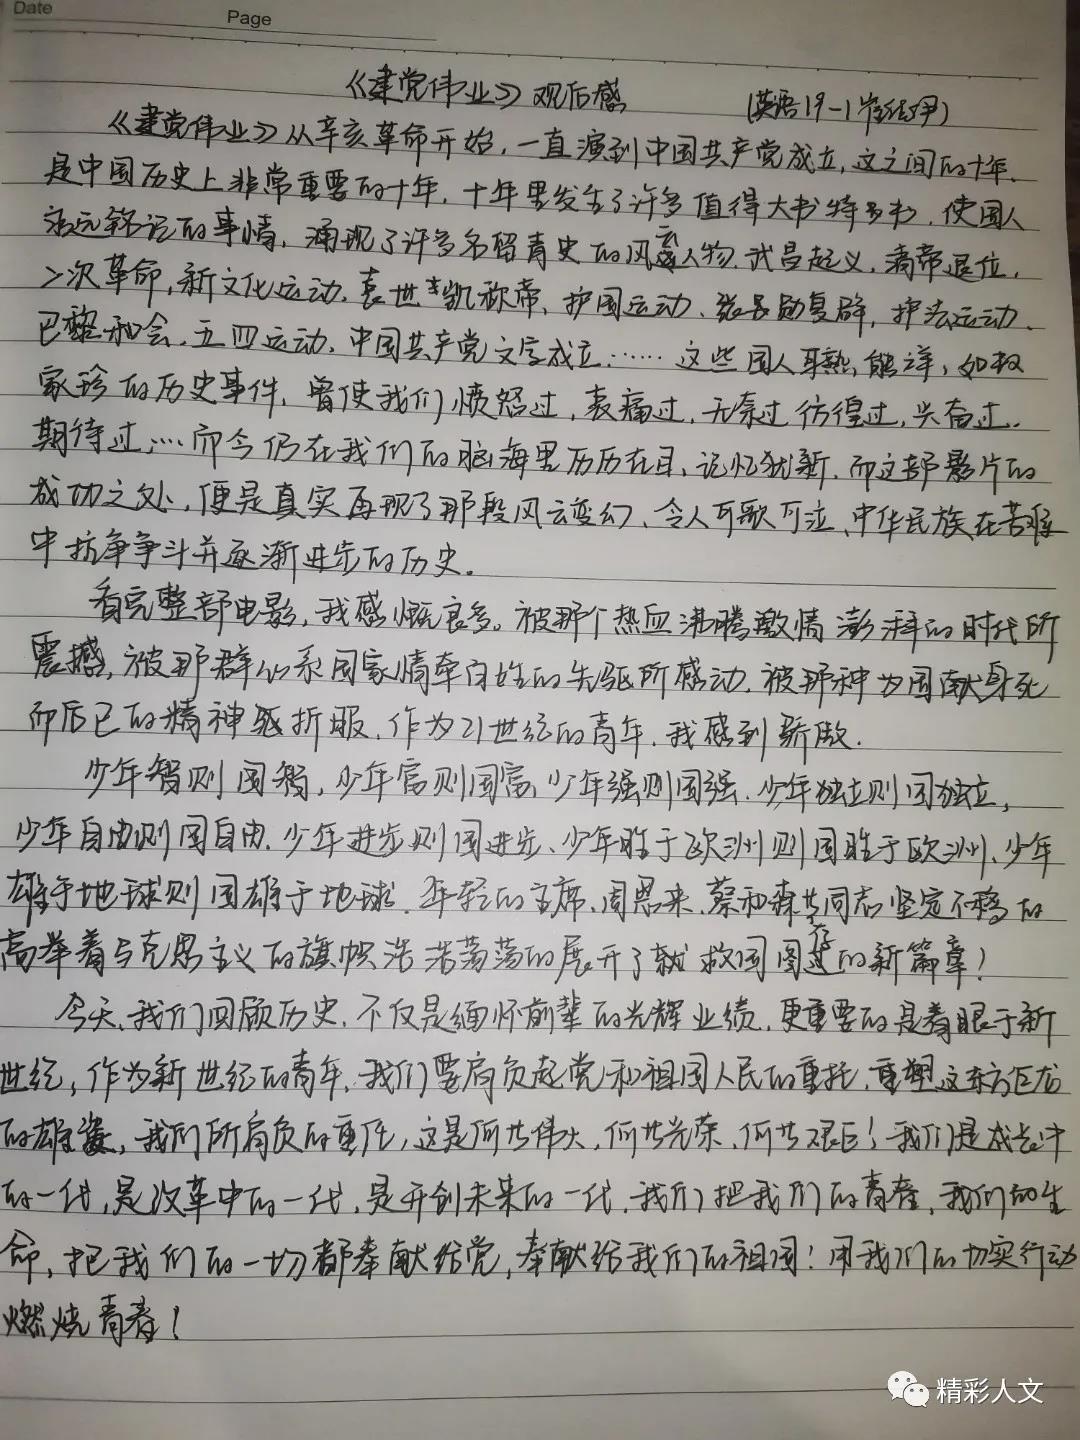 Date
Page
《建党伟业》观后感 (英语19-1
《建党伟业》从辛亥革命开始,一直演到中国共产党成立,这之间的十年,
是中国历史上非常重要的十年,十年里发生了许多值得大书特书,使国人
永远铭记的事情,涌现了许多名留青史的风云人物.武昌起义,清帝退位,
二次革命,新文化运动,袁世凯称帝、护国运动、张勋复辟,护法运动、
巴黎和会、五四运动、中国共产党成立……这些国人耳熟能详,如数
家珍的历史事件,曾使我们愤怒过,哀痛过,无奈过彷徨过,兴奋过,
期待过……而今仍在我们的脑海里历历在目、记忆犹新,而这部影片的
成功之处,便是真实再现了那段风云变幻、令人可歌可泣、中华民族在苦难
中抗争争斗并逐渐进步的历史.
看完整部电影,我感慨良多。被那个热血沸腾激情澎湃的时代所
震撼,被那群心系国家情牵百姓的先驱所感动,被那种为国献身死
而后已的精神所折服.作为21世纪的青年,我感到骄傲.
少年智则国智,少年富则国富,少年强则国强,少年独立则国独立,
少年自由则国自由,少年进步则国进步、少年胜于欧洲则国胜于欧洲、少年
雄于地球则国雄于地球.年轻的主席、周恩来、蔡和森等同志坚定不移的
高举着马克思主义的旗帜浩浩荡荡的展开了救国图存的新篇章!
今天,我们回顾历史,不仅是缅怀前辈的光辉业绩,更重要的是着眼于新
世纪,作为新世纪的青年,我们要肩负起党和祖国人民的重托,重塑这东方巨龙
的雄姿,我们所肩负的重任,这是何其伟大,何其光荣,何其艰巨!我们是成长中
的一代,是改革中的一代,是开创未来的一代.我们把我们的青春,我们的生
命,把我们的一切都奉献给党,奉献给我们的祖国!用我们的切实行动
燃烧青春!
精彩人文